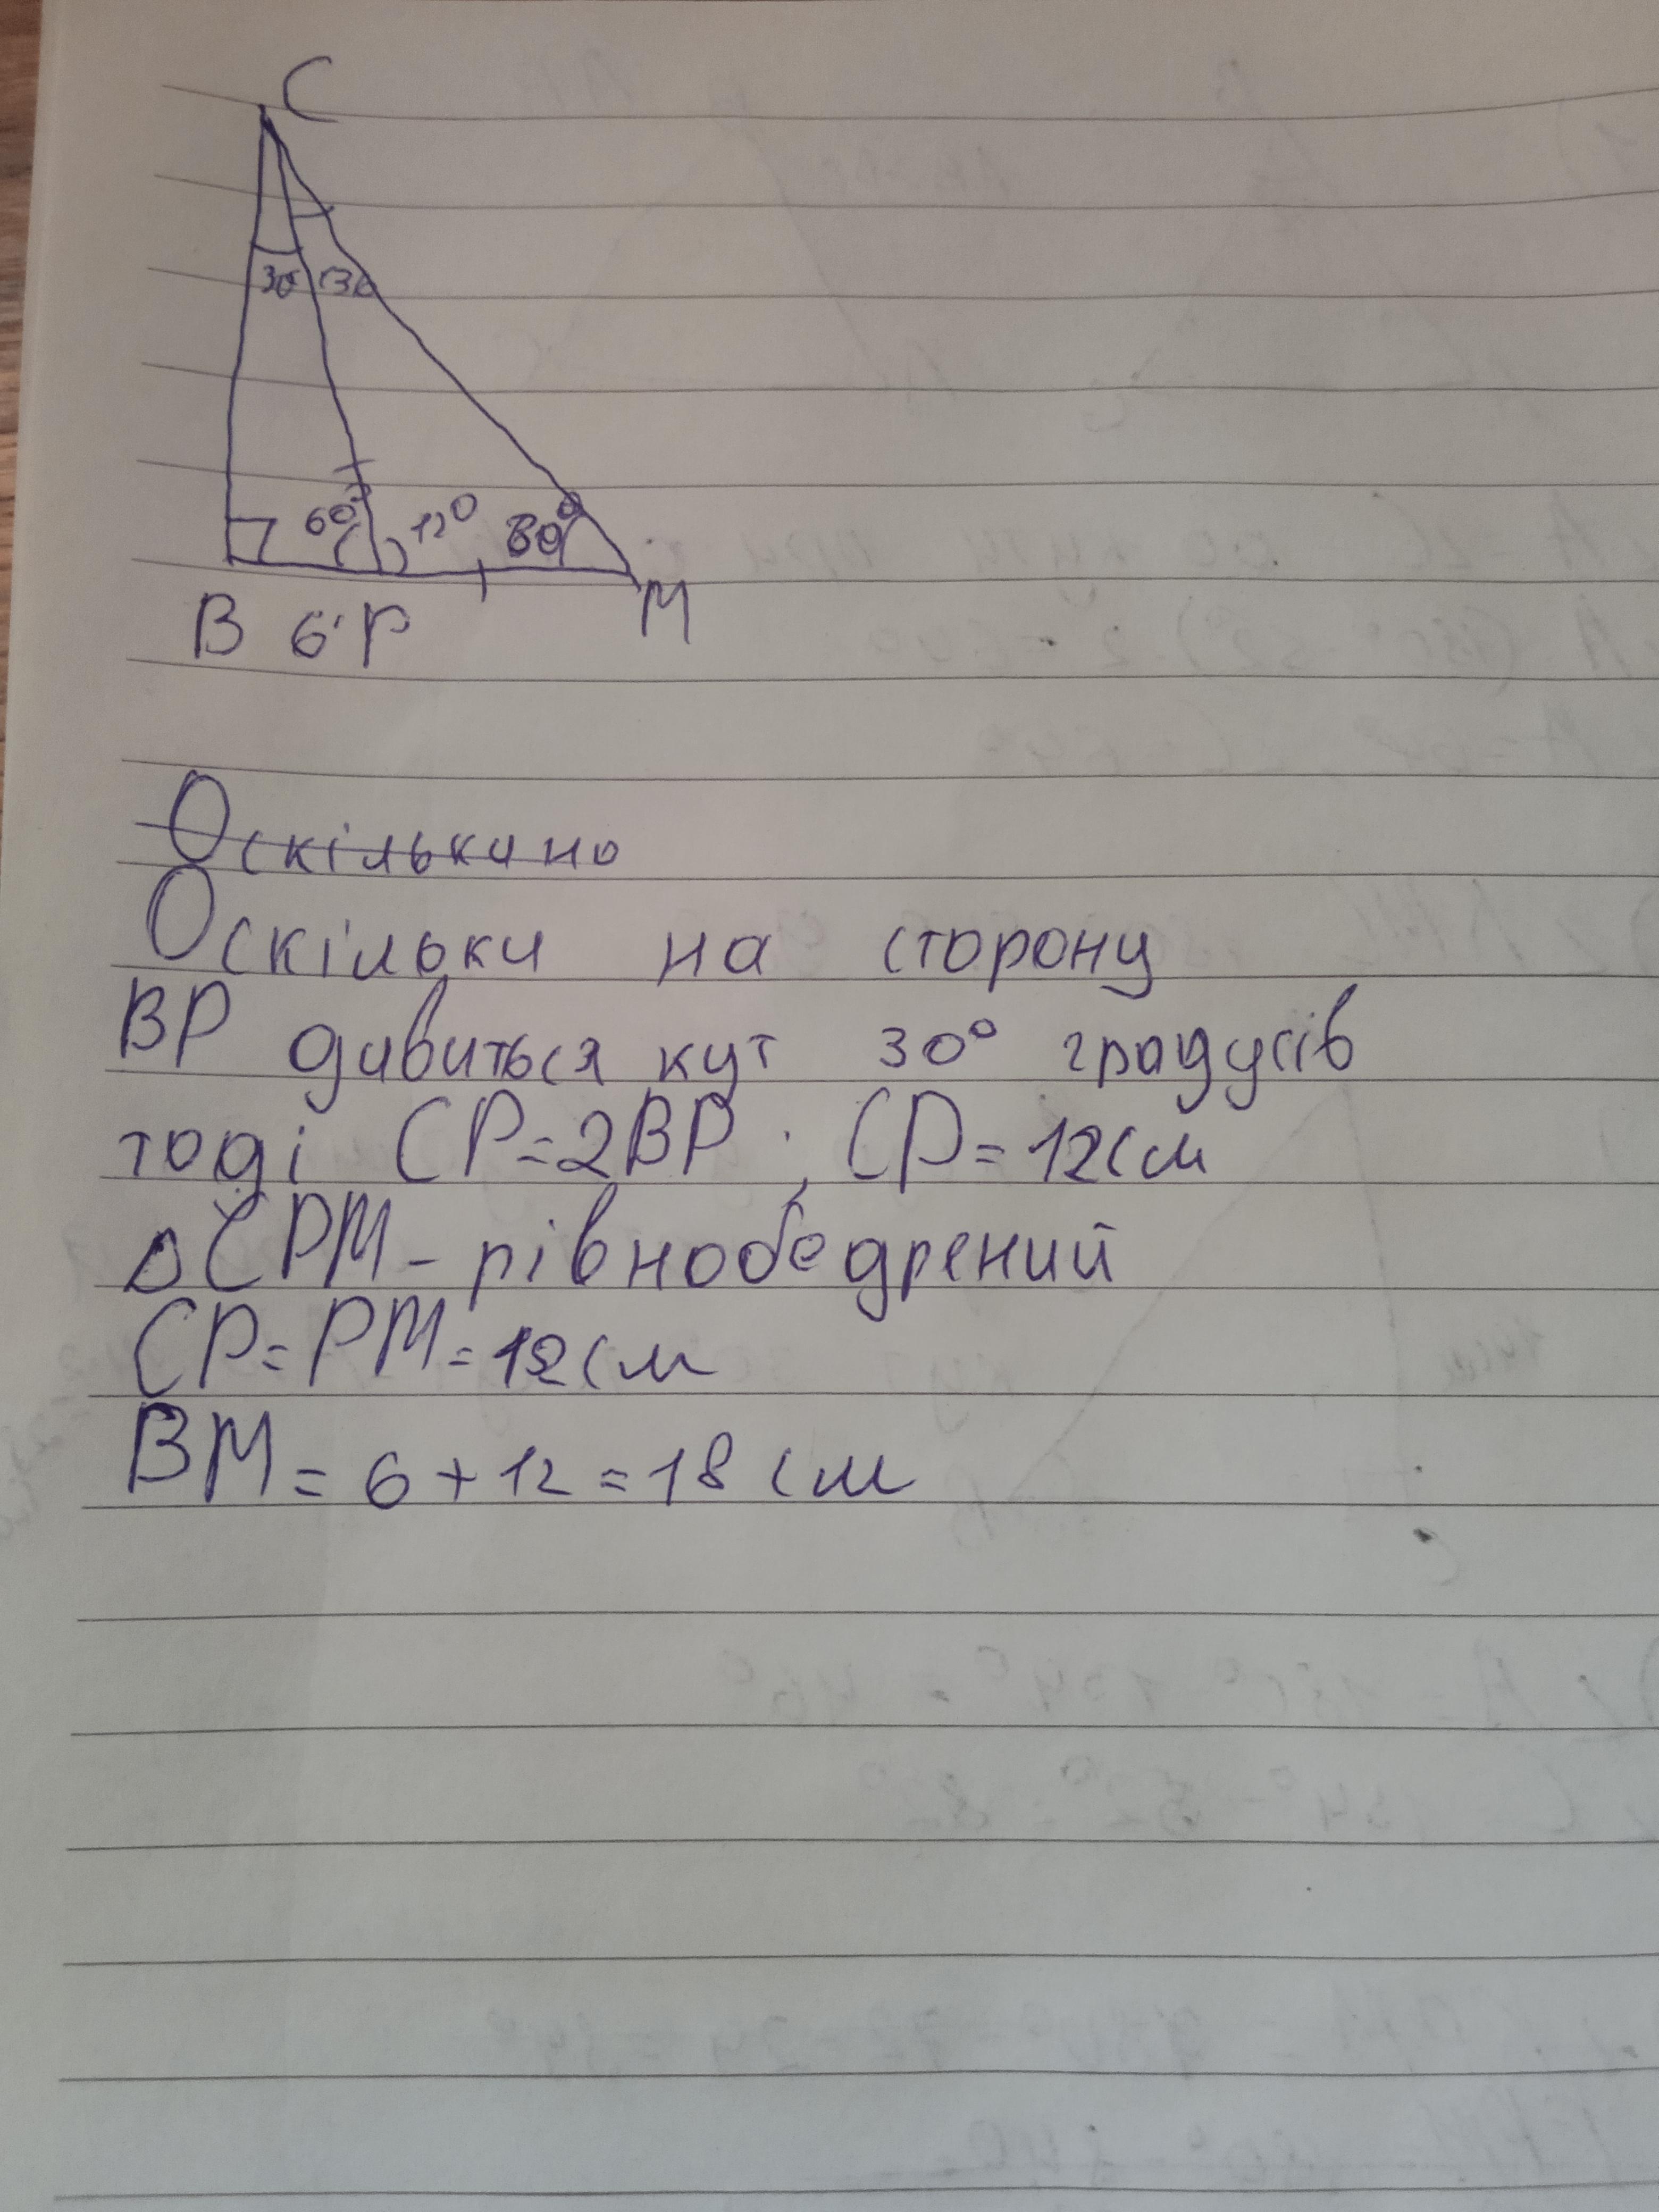 C
30 30
60° 120 30°
B 6 P M
Оскількино
Оскільки на сторону
BP дивиться кут 30° градусів
тоді CP=2BP; CP=12см
△CPM - рівнобедрений
CP=PM=12см
BM=6+12=18см